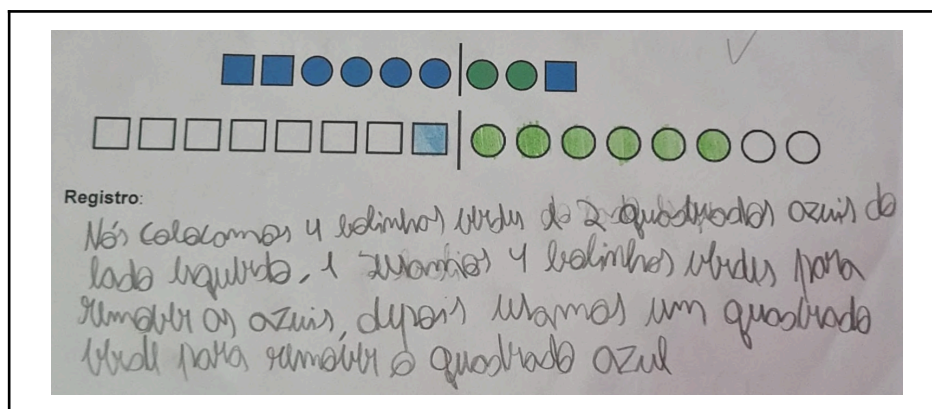 Registro:
Nós colocamos 4 bolinhas verdes do 2 quadrados azuis do
lado esquerdo, 4 bolinhas verdes para
remover os azuis, depois usamos um quadrado
verde para remover o quadrado azul